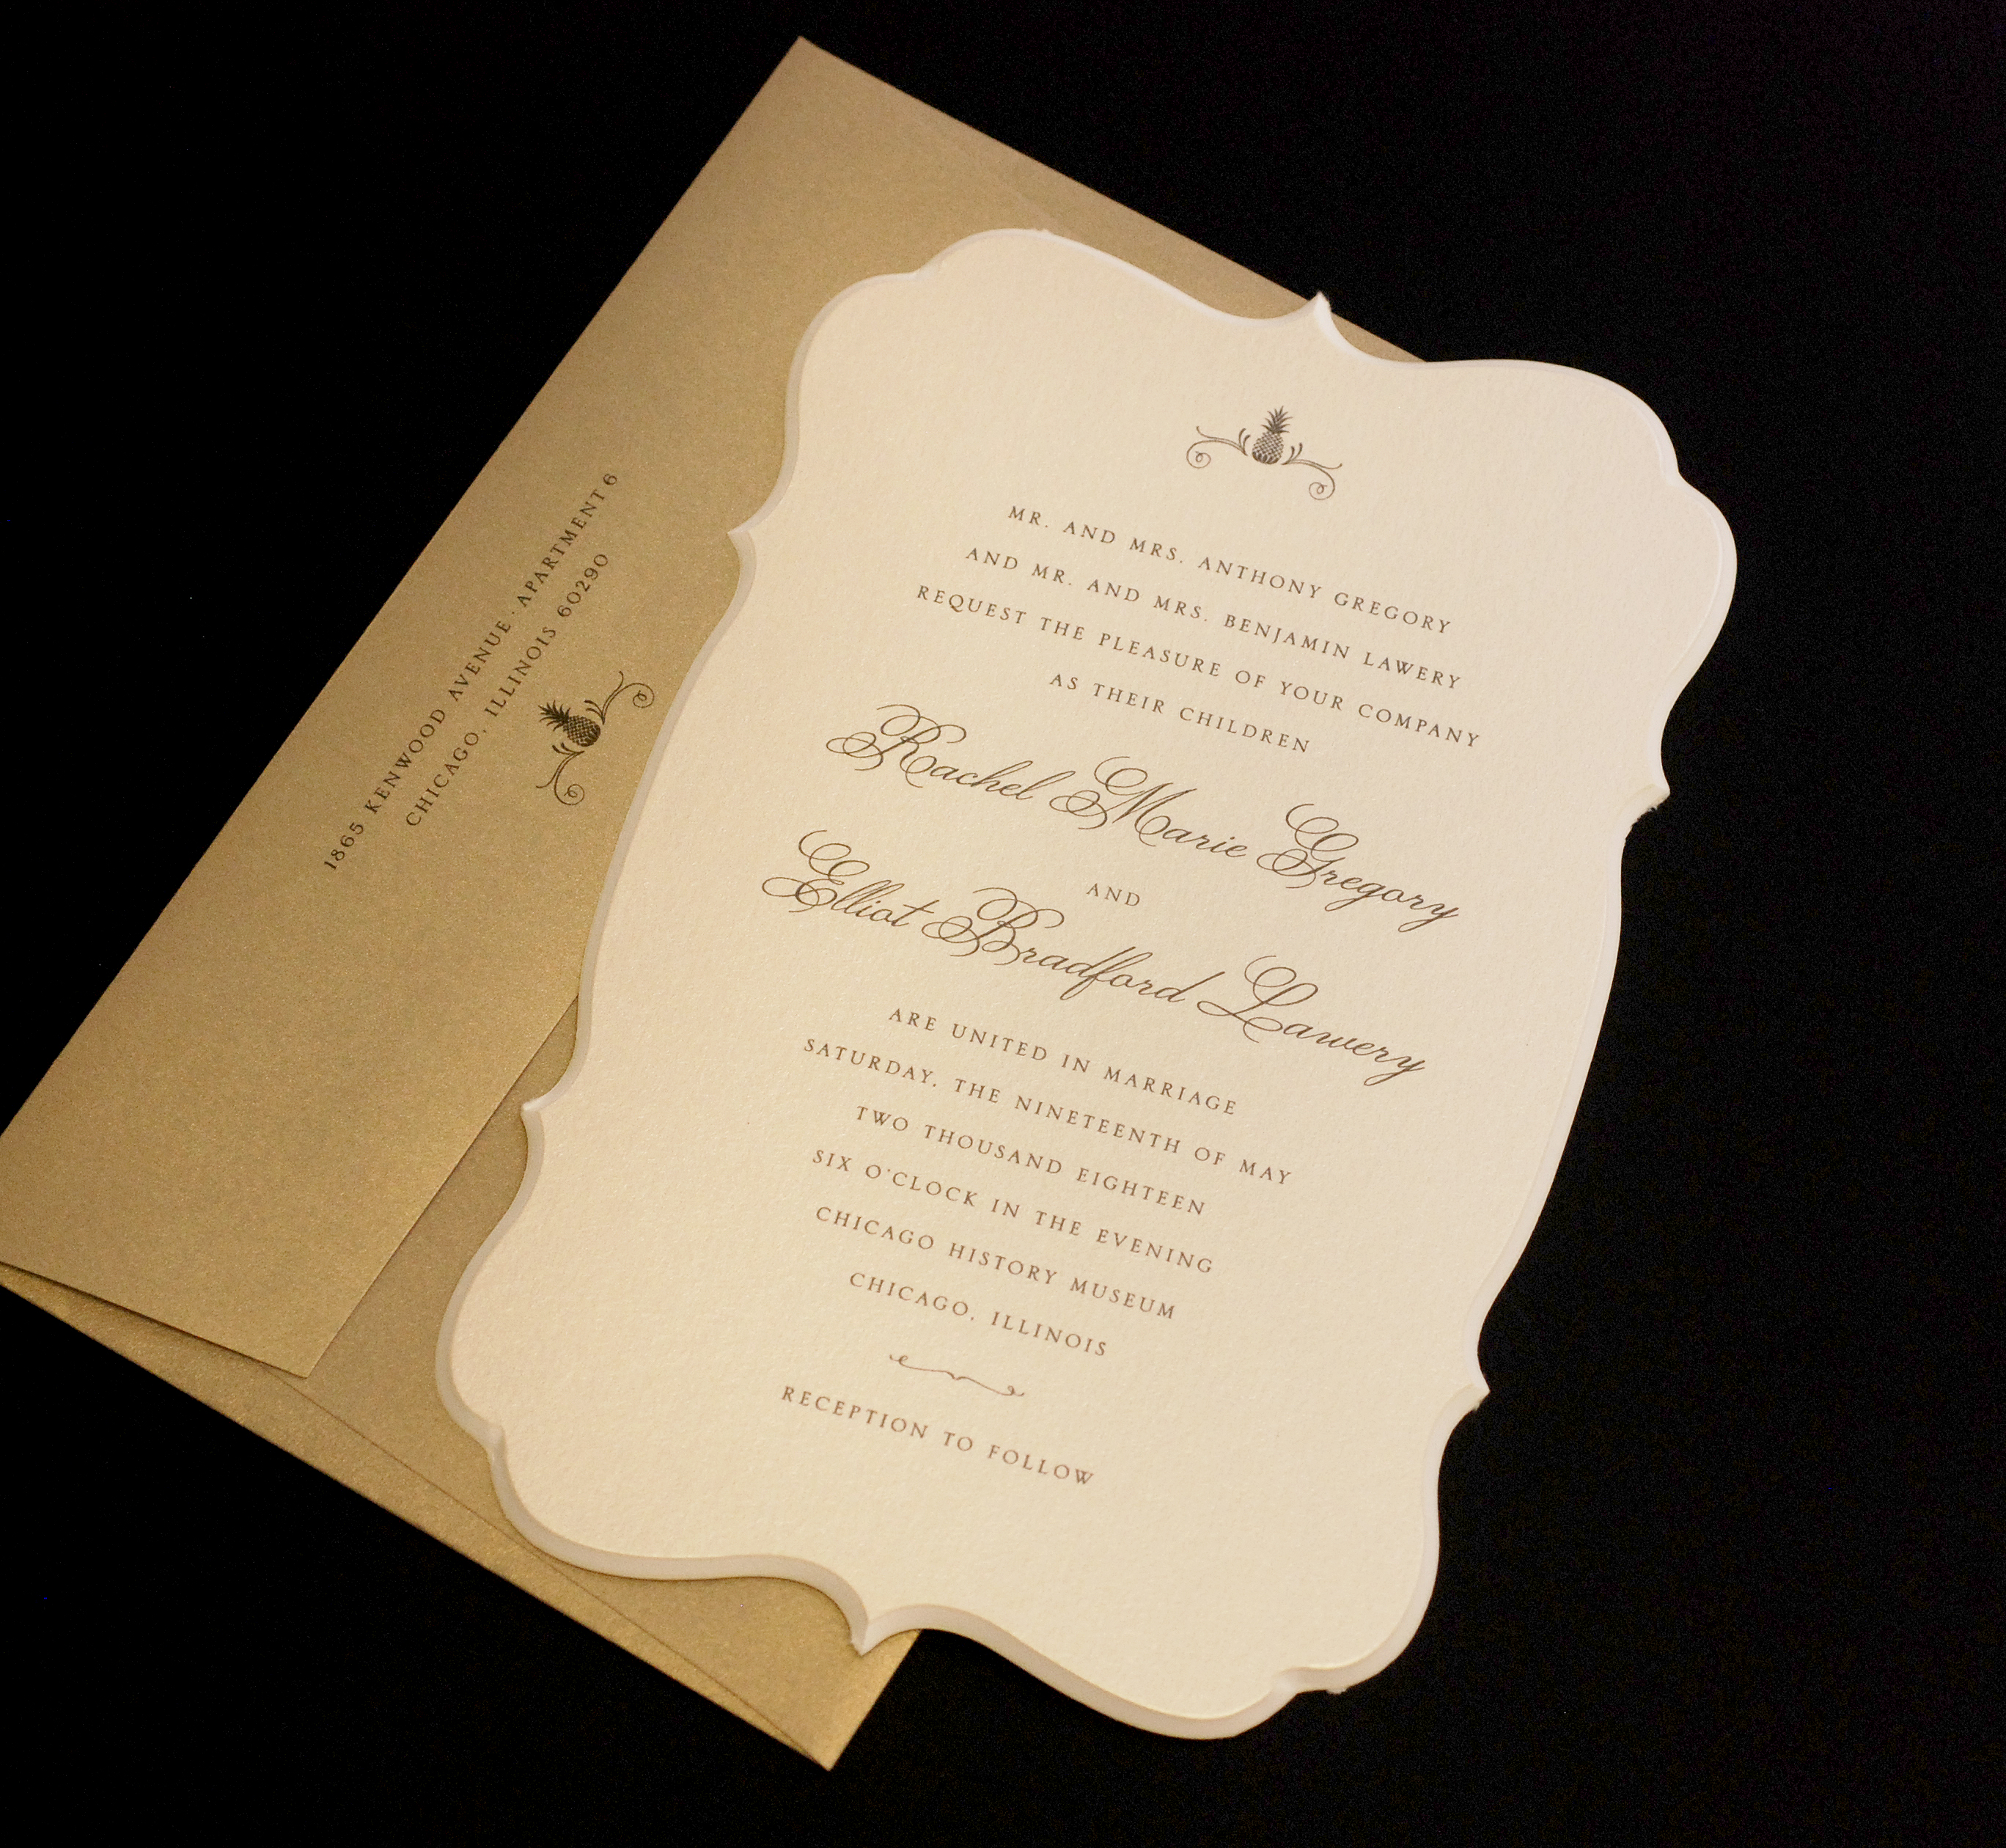 1865 KENWOOD AVENUE · APARTMENT 6
CHICAGO, ILLINOIS 60290
MR. AND MRS. ANTHONY GREGORY
AND MR. AND MRS. BENJAMIN LAWERY
REQUEST THE PLEASURE OF YOUR COMPANY
AS THEIR CHILDREN
Rachel Marie Gregory
AND
Elliot Bradford Lawery
ARE UNITED IN MARRIAGE
SATURDAY, THE NINETEENTH OF MAY
TWO THOUSAND EIGHTEEN
SIX O'CLOCK IN THE EVENING
CHICAGO HISTORY MUSEUM
CHICAGO, ILLINOIS
RECEPTION TO FOLLOW